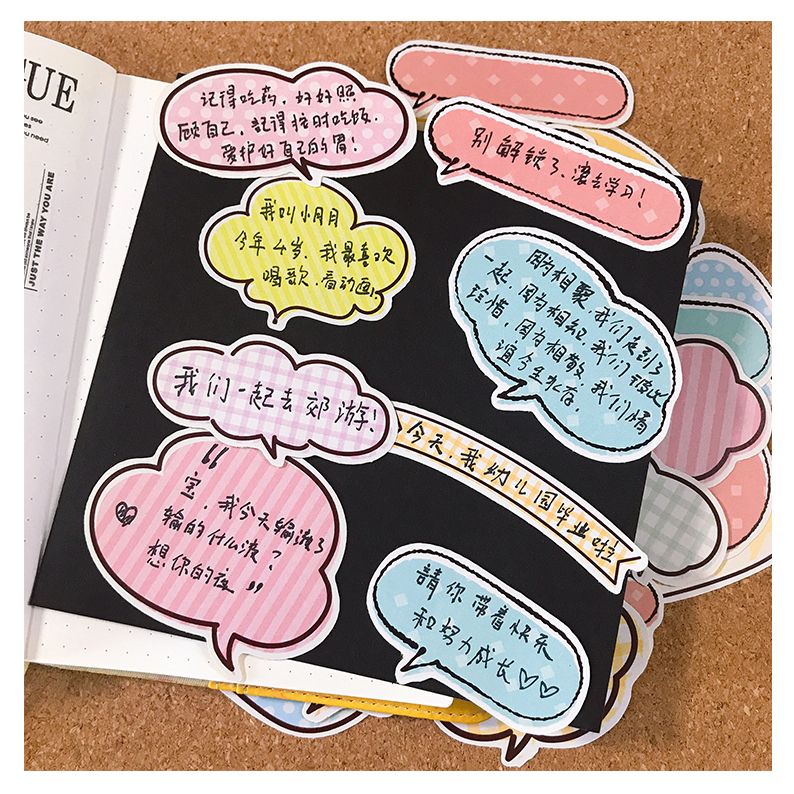 GUE
JUST THE WAY YOU ARE
记得吃药，好好照
顾自己，記得按时吃饭.
爱护好自己的胃！
别解锁了、滚去学习！
我叫小月月
今年4岁，我最喜欢
唱歌.看动画.
因为相聚，我们走到了
一起，因为相知，我们彼此
珍惜，因为相散，我们情
谊今生永存，
我们一起去郊游！
今天，我幼儿园毕业啦
“宝，我今天输液了
输的什么液？
想你的夜”
請你带着快乐
和努力成长♡♡